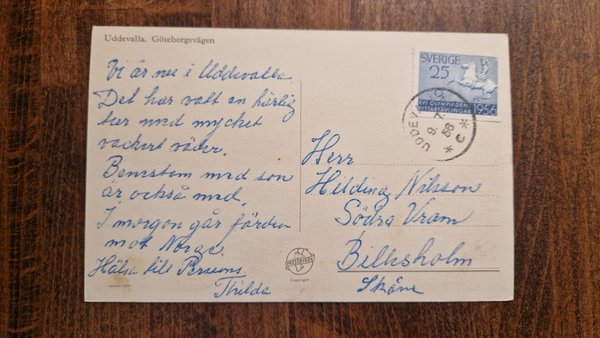 Uddevalla. Göteborgsvägen
Vi är nu i Uddevalla.
Det har vatt en härlig
tur med mycket
vackert väder.
med son
är också med.
I morgon går färden
mot Norge.
Hälsa till Perssons
Thilda
SVERIGE
25
XVI OLYMPIADENS
RYTTARTÄVLINGAR
1956
UDDEVALLA
9 7
56
* C *
Herr
Hilding Nilsson
Södra Vram
Billesholm
Skåne
PRESSBYRÅN
Copyright